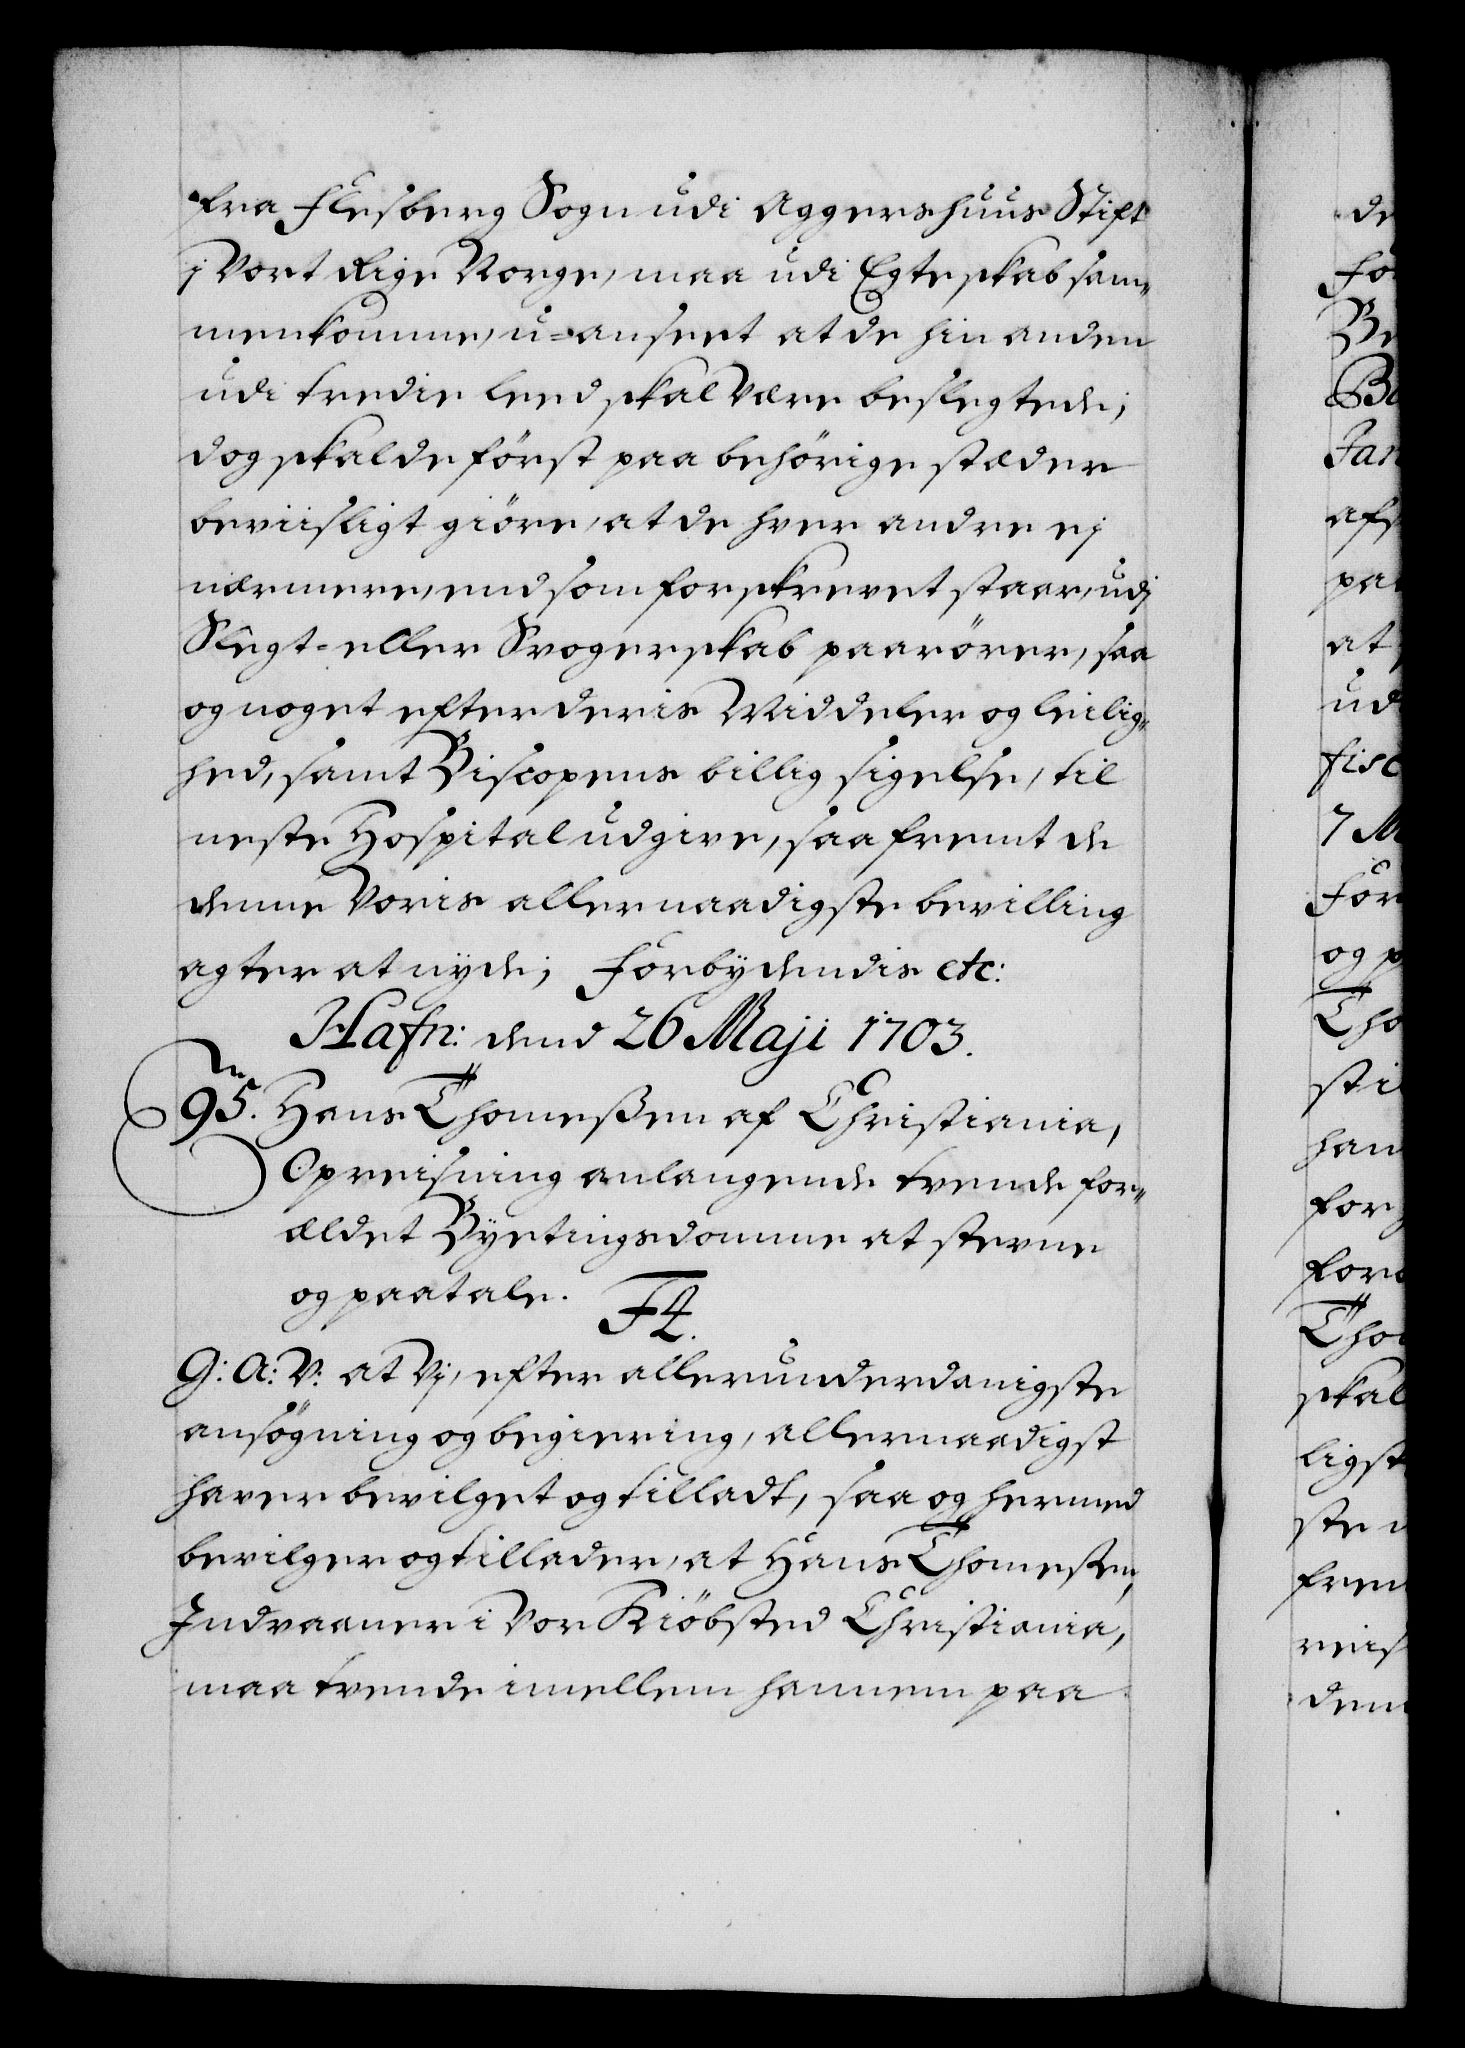 fra Flesberg Sogn udi Aggershuus Stift
j Vort Rige Norge, maa udi Egteskab sam„
menkomme, u=anseet at de hin anden
udi tredie leed skal være beslegtede;
dog skal de först paa behörige stæder
beviisligt giöre, at de hver andre ej
nærmere, end som forskrevet staar, udj
Slegt= eller Svogerskab paarörer, saa
og noget efter deris Middeler og leilig„
hed, samt Biscopens billig sigelse, til
neste Hospital udgive, saafremt de
denne Voris allernaadigste bevilling
agter at nyde; Forbydendis etc:
Hafn: dend 26 Maji 1703.
95. Hans Thomeßen af Christiania,
Opreisning anlangende trende for„
ældet Byetingsdomme at stevne
og paatale. F4.
G: A: V: at Vj, efter allerunderdanigste
ansögning og begiering, allernaadigst
haver bevilget og tilladt, saa og hermed
bevilger og tillader, at Hans Thomeßen,
Indvaaner i Vor Kiöbsted Christiania,
maa trende imellem hannem paa
de
For
Be
Ba
Jan
afs
paa
at
ud
fisc
7 M
For
og p
Tho
stil
han
for
for
Tho
skal
ligst
ste
frem
reis
dem